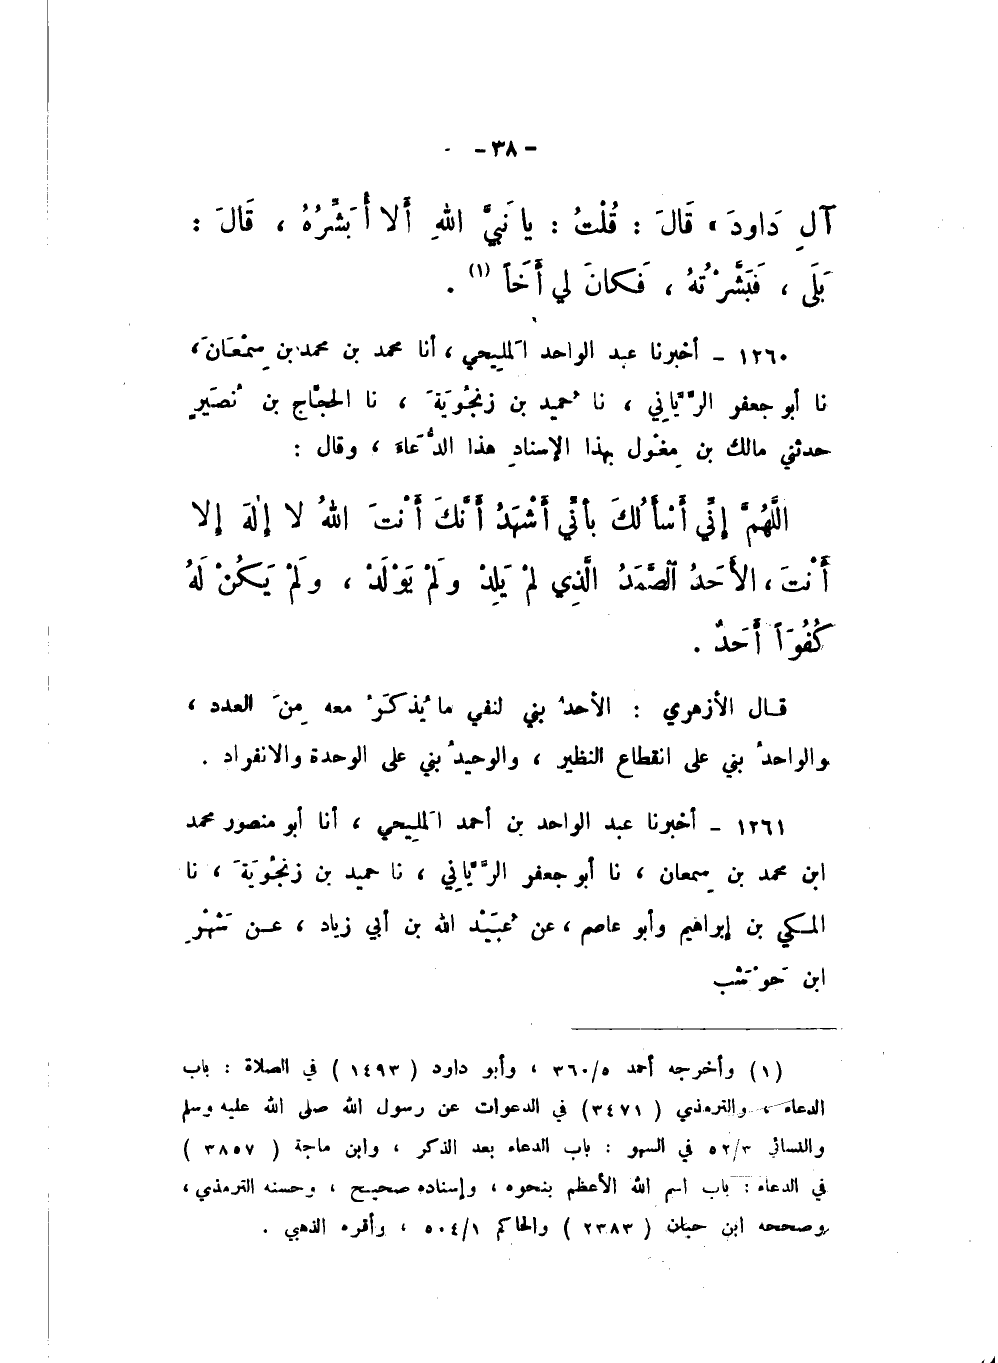 - ٣٨ -
آلِ دَاودَ » قَالَ : قُلْتُ : يا نَبِيَّ اللهِ أَلا أُبَشِّرُهُ ، قَالَ :
بَلَى ، فَبَشَّرْتُهُ ، فَكانَ لي أَخَاً (١) .
١٢٦٠ - أخبرنا عبد الواحد المَليحي ، أنا محمد بن محمد بن سِمْعَانَ ،
نا أبو جعفر الرَّيَّاني ، نا حُميد بن زنجُويَةَ ، نا الحجَّاج بن نُصَيرٍ
حدثني مالك بن مِغْول بهذا الإسنادِ هذا الدُّعَاءَ ، وقال :
اللَّهُمَّ إنِّي أَسْأَلُكَ بأنِّي أَشْهَدُ أَنَّكَ أَنْتَ اللهُ لا إلٰهَ إلا
أَنْتَ ، الأَحَدُ الصَّمَدُ الَّذِي لمْ يَلِدْ ولَمْ يُوْلَدْ ، ولَمْ يَكُنْ لَهُ
كُفُوَاً أَحَدٌ .
قال الأزهري : الأحدُ بني لنفي ما يُذكَرُ معه مِنَ العدد ،
والواحدُ بني على انقطاع النظير ، والوحيدُ بني على الوحدة والانفراد .
١٢٦١ - أخبرنا عبد الواحد بن أحمد المَليحي ، أنا أبو منصور محمد
ابن محمد بن سِمعان ، نا أبو جعفر الرَّيَّاني ، نا حميد بن زنجُويَةَ ، نا
المكي بن إبراهيم وأبو عاصم ، عن عُبَيْد الله بن أبي زياد ، عن شَهْرِ
ابن حَوْشَب
(١) وأخرجه أحمد ٥/٣٦٠ ، وأبو داود ( ١٤٩٣ ) في الصلاة : باب
الدعاء ، والترمذي ( ٣٤٧١ ) في الدعوات عن رسول الله صلى الله عليه وسلم
والنسائي ٣/٥٢ في السهو : باب الدعاء بعد الذكر ، وابن ماجة ( ٣٨٥٧ )
في الدعاء : باب اسم الله الأعظم بنحوه ، وإسناده صحيح ، وحسنه الترمذي ،
وصححه ابن حبان ( ٢٣٨٣ ) والحاكم ١/٥٠٤ ، وأقره الذهبي .